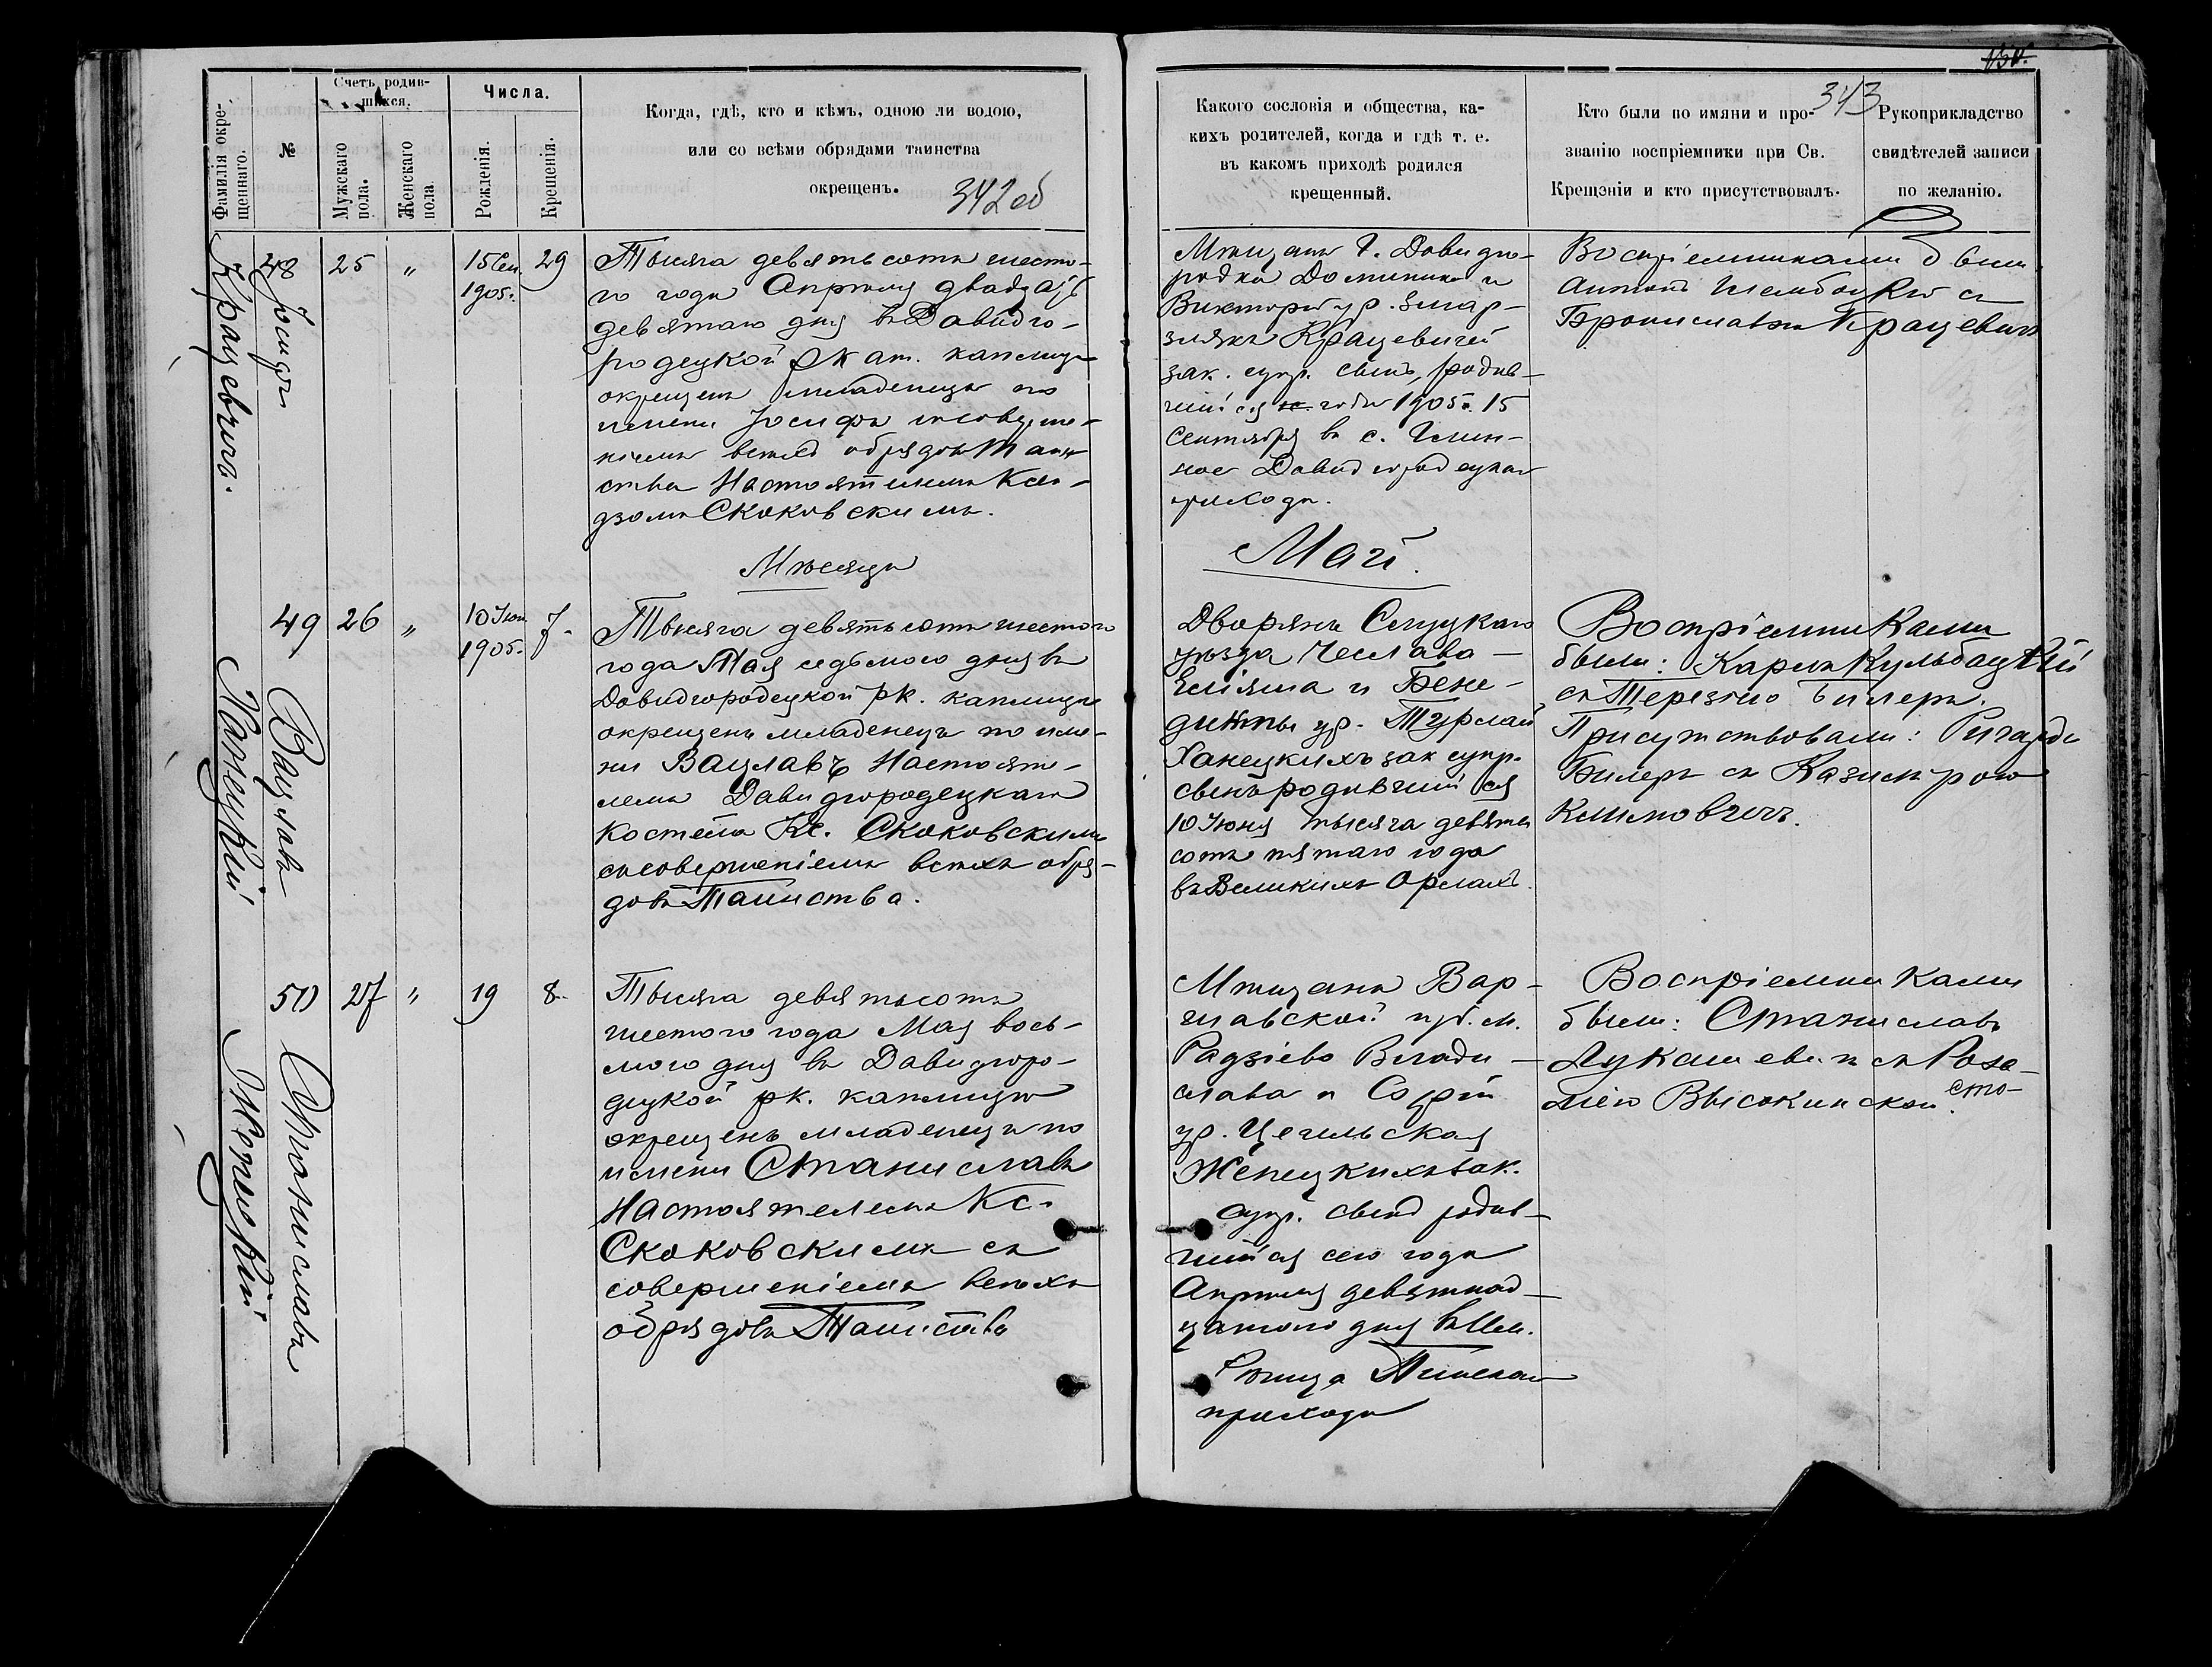 Фамилія окре-
щеннаго.
№
Счетъ родив-
шихся.
Мужскаго
пола.
Женскаго
пола
Числа.
Рожденія.
Крещенія.
Когда, гдѣ, кто и кѣмъ, одною ли водою,
или со всѣми обрядами таинства
окрещенъ.
342 об
48
Іосифъ
Крацевичъ.
25
"
15 Сен.
1905 г.
29
Тысяча девятьсотъ шесто-
го года Апрѣля двадцать
девятаго дня въ Давидго-
родецкой рк ат. каплицѣ
окрещенъ младенецъ по
имени Іосифъ
всѣхъ обрядовъ Таин
ства Настоятелемъ Ксен-
дзомъ Скоковскимъ.
Мѣсяцъ
49
Вацлавъ
Ханецкій
26
"
10 Іюн
1905 г.
7.
Тысяча девятьсотъ шестого
года Мая седьмого дня въ
Давидгородецкой рк. каплицѣ
окрещенъ младенецъ по име-
ни Вацлавъ Настоят-
лемъ Давидгородецкаго
костёла Кс. Скоковскимъ
съ совершеніемъ всѣхъ обря-
довъ Таинства.
50
Станиславъ
Жепецкій
27
"
19
8.
Тысяча девятьсотъ
шестого года Мая вось-
мого дня въ Давидгоро-
децкой рк. каплицѣ
окрещенъ младенецъ по
имени Станиславъ
Настоятелемъ Кс.
Скоковскимъ съ
совершеніемъ всѣхъ
обрядовъ Таинства
343
Какого сословія и общества, ка-
кихъ родителей, когда и гдѣ т. е.
въ какомъ приходѣ родился
крещенный.
Кто были по имяни и про-
званію воспріемники при Св.
Крещэніи и кто присутствовалъ.
Рукоприкладство
свидѣтелей записи
по желанію.
Мѣщанъ Г. Давидго-
родка Доминика и
Викторіи ур.
Крацевичей
зак. супр. сынъ, родив-
шійся года 1905 г. 15
Сентября въ с.
Давидгородецкаго
прихода.
Воспріемниками были
Антонъ съ
Брониславою Крацевичъ
Май.
Дворянъ Слуцкаго
уѣзда Чеслава-
Еліяша и Бене-
дикты ур. Турлай
Ханецкихъ зак супр.
сынъ родившійся
10 Іюня тысяча девять
сотъ пятаго года
въ Великихъ Орлахъ.
Воспріемниками
были: Карлъ Кульбацкій
съ Терезіею Билеръ.
Присутствовали: Ричардъ
Билеръ съ Казимірою
Климовичъ.
Мѣщанъ Вар-
шавской губ. м.
Радзіево Влади-
слава и Софіи
ур. Цегельская
Жепецкихъ зак.
супр. сынъ родив-
шійся сего года
Апрѣля девятнад-
цатого дня въ
Пинскаго
прихода
Воспріемниками
были: Станиславъ
Лукашевичъ съ Роза-
ліею Высокинской.